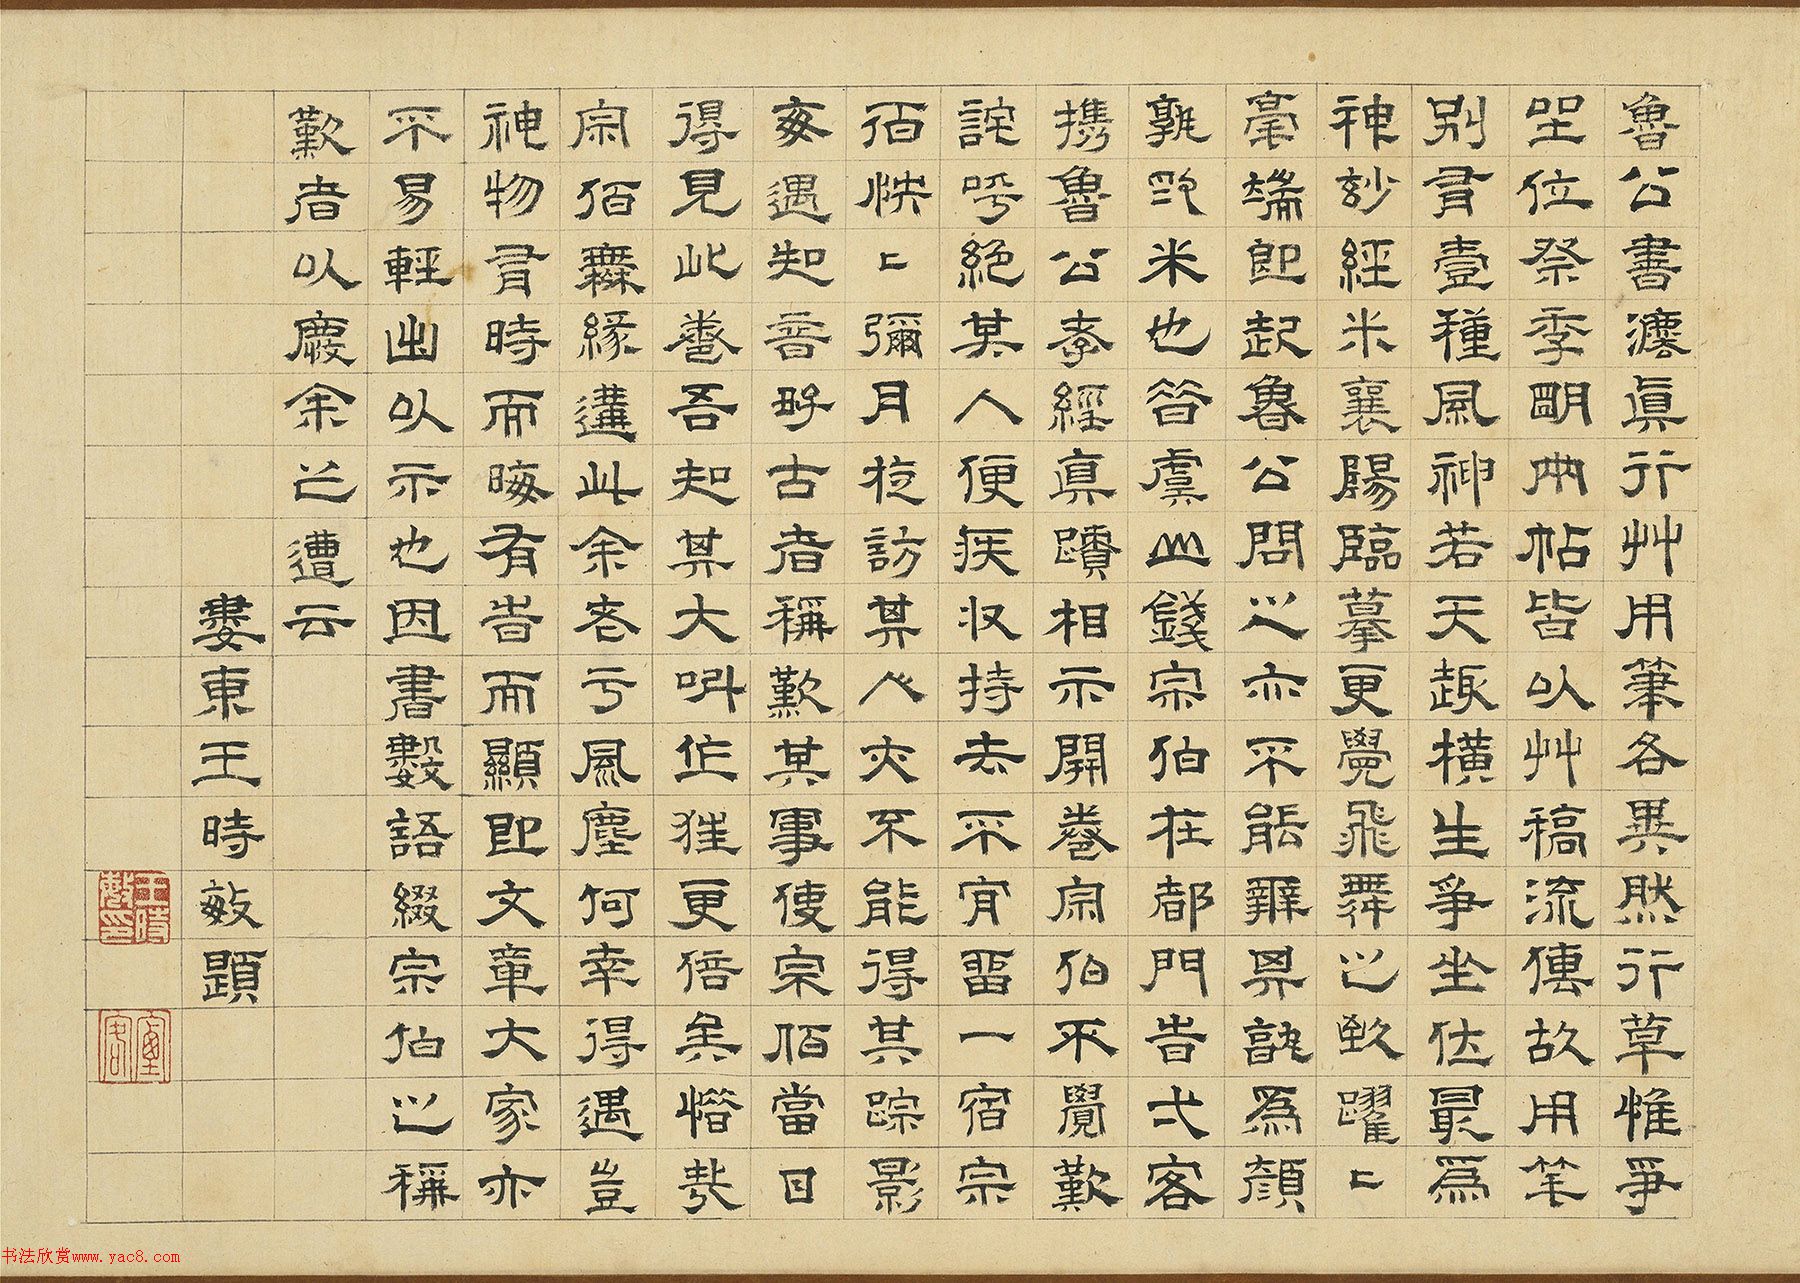 魯公書灋真行艸用筆各異然行草惟爭
坐位祭季明兩帖皆以艸稿流傳故用筆
別有壹種風神若天趣橫生爭坐位最為
神妙經米襄陽臨摹更覺飛舞之致躍〻
毫端即起魯公問之亦不能辨異孰為顏
孰為米也昔虞山錢宗伯在都門昔弋客
攜魯公孝經真蹟相示開卷宗伯不覺歎
詫呼絕其人便疾收持去不肎留一宿宗
伯怏〻彌月後訪其人夾不能得其踪影
每遇知音好古者稱歎其事使宗伯當日
得見此卷吾知其大叫作狂更倍矣惜哉
宗伯無緣遘此余老亏風塵何幸得遇豈
神物有時而晦有昔而顯即文章大家亦
不易輕出以示也因書數語綴宗伯之稱
歎者以慶余之遭云
婁東王時敏題
王時敏印
書法欣賞www.yac8.com